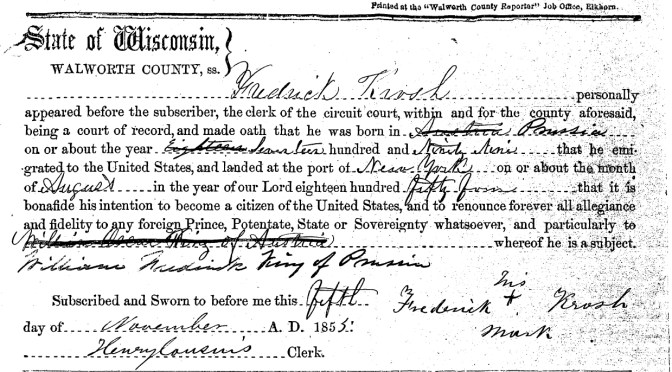 Printed at the "Walworth County Reporter" Job Office, Elkhorn.
State of Wisconsin,
WALWORTH COUNTY, ss.
Fredrick Krosh personally
appeared before the subscriber, the clerk of the circuit court, within and for the county aforesaid,
being a court of record, and made oath that he was born in Austria Prussia
on or about the year Eighteen Seventeen hundred and Ninty Nine that he emi-
grated to the United States, and landed at the port of New York on or about the month
of August in the year of our Lord eighteen hundred fifty four that it is
bonafide his intention to become a citizen of the United States, and to renounce forever all allegiance
and fidelity to any foreign Prince, Potentate, State or Sovereignty whatsoever, and particularly to
King of Austria whereof he is a subject.
William Fredrick King of Prussia
Subscribed and Sworn to before me this fifth
day of November A. D. 1855.
Henry Cousins Clerk.
his
Frederick + Krosh
mark